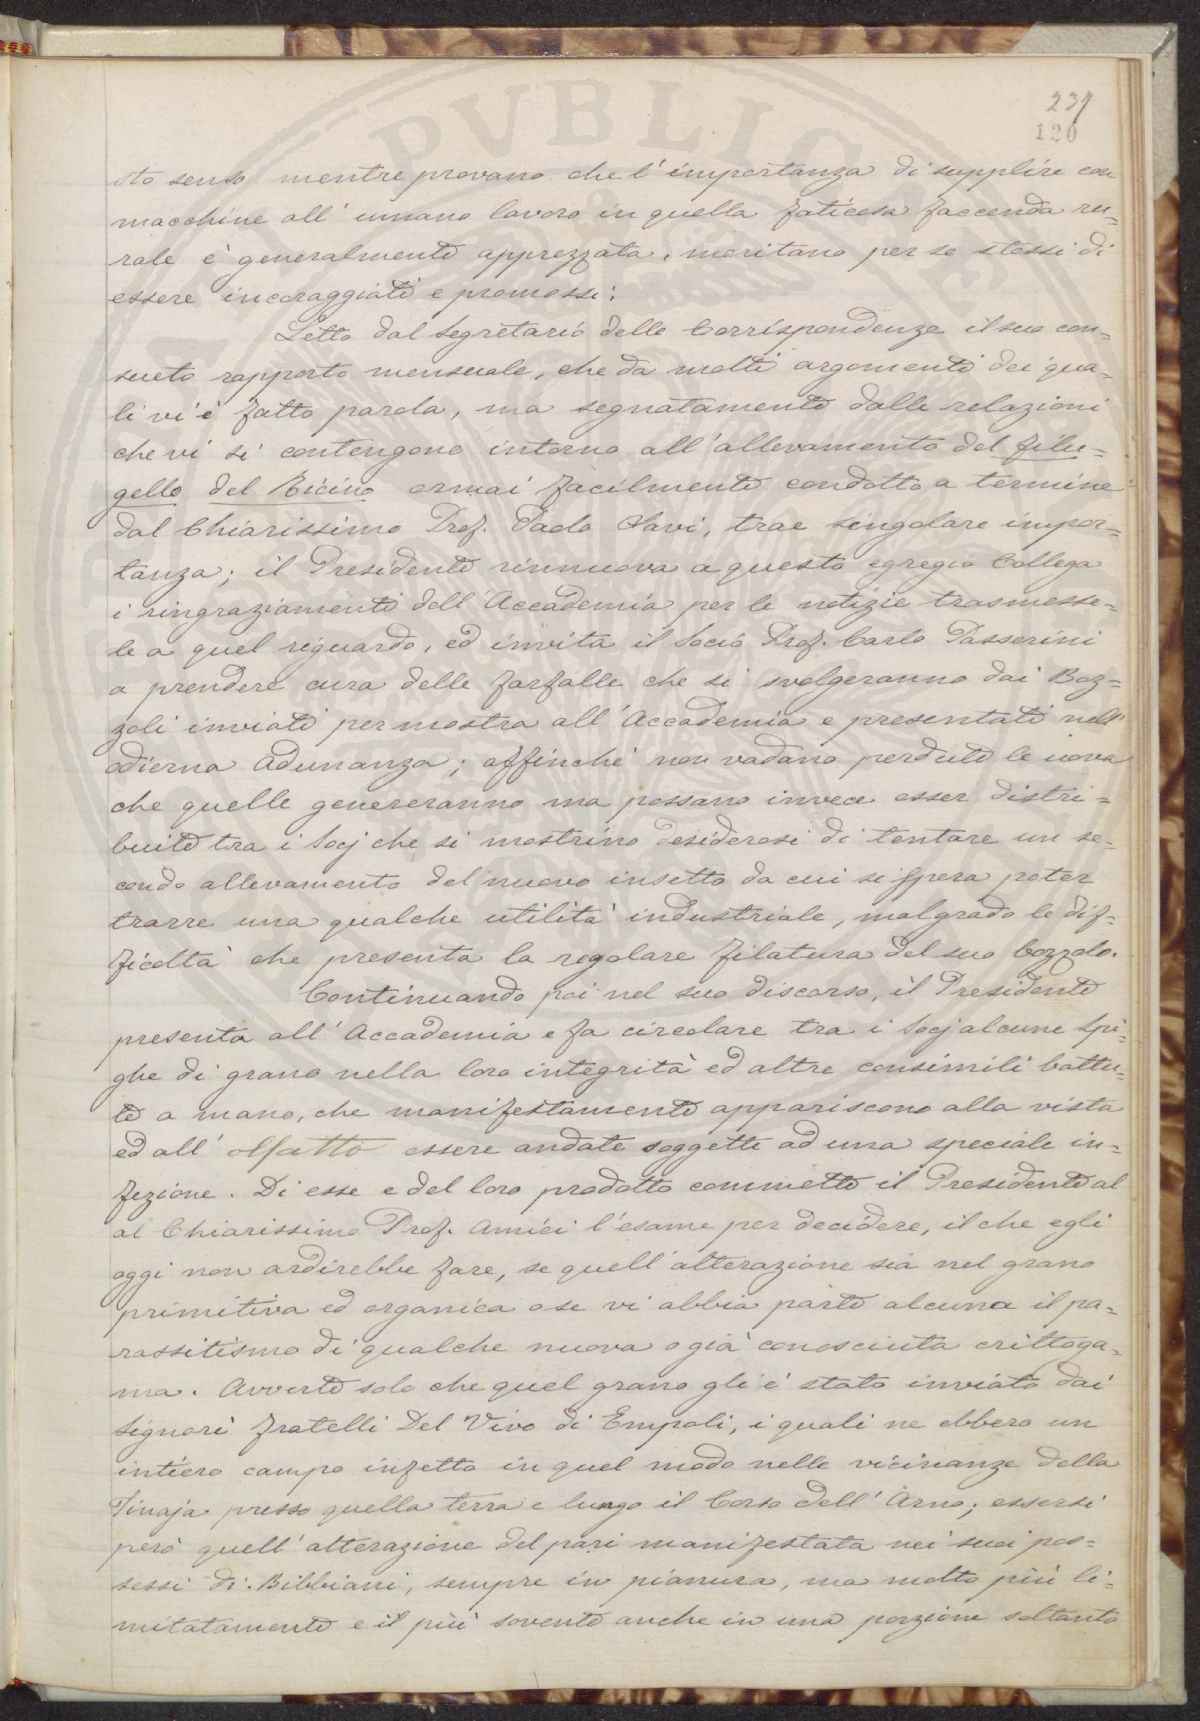 237
120
sto senso mentre provano che l'importanza di supplire con
macchine all'umano lavoro in quella faticosa faccenda ru-
rale è generalmente apprezzata, meritano per se stessi di
essere incoraggiati e promossi.
Letto dal Segretario delle Corrispondenze il suo con-
sueto rapporto mensuale, che da molti argomenti dei qua-
li vi è fatto parola, ma segnatamente dalle relazioni
che vi si contengono intorno all'allevamento del filu-
gello del Ricino ormai facilmente condotto a termine
dal Chiarissimo Prof. Paolo Savi, trae singolare impor-
tanza; il Presidente rinnuova a questo egregio Collega
i ringraziamenti dell'Accademia per le notizie trasmesse-
le a quel riguardo, ed invita il Socio Prof. Carlo Passerini
a prendere cura delle farfalle che si svolgeranno dai Boz-
zoli inviati per mostra all'Accademia e presentati nell'
odierna adunanza; affinché non vadano perdute le uova
che quelle genereranno ma possano invece esser distri-
buite tra i Socj che si mostrino desiderosi di tentare un se-
condo allevamento del nuovo insetto da cui si spera poter
trarre una qualche utilità industriale, malgrado le dif-
ficoltà che presenta la regolare filatura del suo bozzolo.
Continuando poi nel suo discorso, il Presidente
presenta all'Accademia e fa circolare tra i Socj alcune Spi-
ghe di grano nella loro integrità ed altre consimili battu-
te a mano, che manifestamente appariscono alla vista
ed all'olfatto essere andate soggette ad una speciale in-
fezione. Di esse e del loro prodotto commette il Presidente al
al Chiarissimo Prof. Amici l'esame per decidere, il che egli
oggi non ardirebbe fare, se quell'alterazione sia nel grano
primitiva ed organica o se vi abbia parte alcuna il pa-
rassitismo di qualche nuova o già conosciuta crittoga-
ma. Avverte solo che quel grano gli è stato inviato dai
Signori fratelli Del Vivo di Empoli, i quali ne ebbero un
intiero campo infetto in quel modo nelle vicinanze della
Tinaja presso quella terra e lungo il Corso dell'Arno; essersi
però quell'alterazione del pari manifestata nei suoi pos-
sessi di Bibbiani, sempre in pianura, ma molto più li-
mitatamente e il più sovente anche in una porzione soltanto